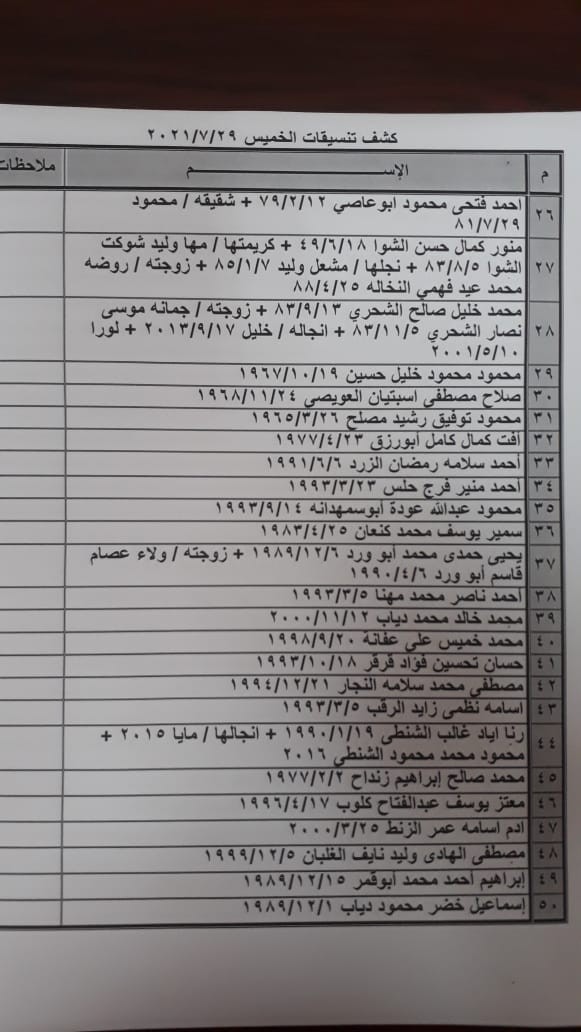 كشف تنسيقات الخميس ٢٠٢١/٧/٢٩
م الإســـــــم ملاحظات
٢٦ احمد فتحى محمود ابوعاصي ٧٩/٢/١٢ + شقيقه / محمود
٨١/٧/٢٩
منور كمال حسن الشوا ٤٩/٦/١٨ + كريمتها / مها وليد شوكت
٢٧ الشوا ٨٣/٨/٥ + نجلها / مشعل وليد ٨٥/١/٧ + زوجته / روضه
محمد عيد فهمي النخاله ٨٨/٤/٢٥
محمد خليل صالح الشحري ٨٣/٩/١٣ + زوجته / جمانه موسى
٢٨ نصار الشحري ٨٣/١١/٥ + انجاله / خليل ٢٠١٣/٩/١٧ + لورا
٢٠٠١/٥/١٠
٢٩ محمود محمود خليل حسين ١٩٦٧/١٠/١٩
٣٠ صلاح مصطفى اسبتيان العويصي ١٩٦٨/١١/٢٤
٣١ محمود توفيق رشيد مصلح ١٩٦٥/٣/٢٦
٣٢ أفت كمال كامل أبورزق ١٩٧٧/٤/٢٣
٣٣ أحمد سلامه رمضان الزرد ١٩٩١/٦/٦
٣٤ أحمد منير فرج حلس ١٩٩٣/٣/٢٣
٣٥ محمود عبدالله عودة أبوسمهدانه ١٩٩٣/٩/١٤
٣٦ سمير يوسف محمد كنعان ١٩٨٣/٤/٢٥
٣٧ يحيى حمدى محمد أبو ورد ١٩٨٩/١٢/٦ + زوجته / ولاء عصام
قاسم أبو ورد ١٩٩٠/٤/٦
٣٨ أحمد ناصر محمد مهنا ١٩٩٣/٣/٥
٣٩ محمد خالد محمد دياب ٢٠٠٠/١١/١٢
٤٠ محمد خميس على عفانة ١٩٩٨/٩/٢٠
٤١ حسان تحسين فؤاد قرقر ١٩٩٣/١٠/١٨
٤٢ مصطفى محمد سلامه النجار ١٩٩٤/١٢/٢١
٤٣ اسامه نظمى زايد الرقب ١٩٩٣/٣/٥
٤٤ رنا اياد غالب الشنطى ١٩٩٠/١/١٩ + انجالها / مايا ٢٠١٥ +
محمود محمد محمود الشنطى ٢٠١٦
٤٥ محمد صالح إبراهيم زنداح ١٩٧٧/٢/٢
٤٦ معتز يوسف عبدالفتاح كلوب ١٩٩٦/٤/١٧
٤٧ ادم اسامه عمر الزنط ٢٠٠٠/٣/٢٥
٤٨ مصطفى الهادى وليد نايف الغلبان ١٩٩٩/١٢/٥
٤٩ إبراهيم أحمد محمد أبوقمر ١٩٨٩/١٢/١٥
٥٠ إسماعيل خضر محمود دياب ١٩٨٩/١٢/١